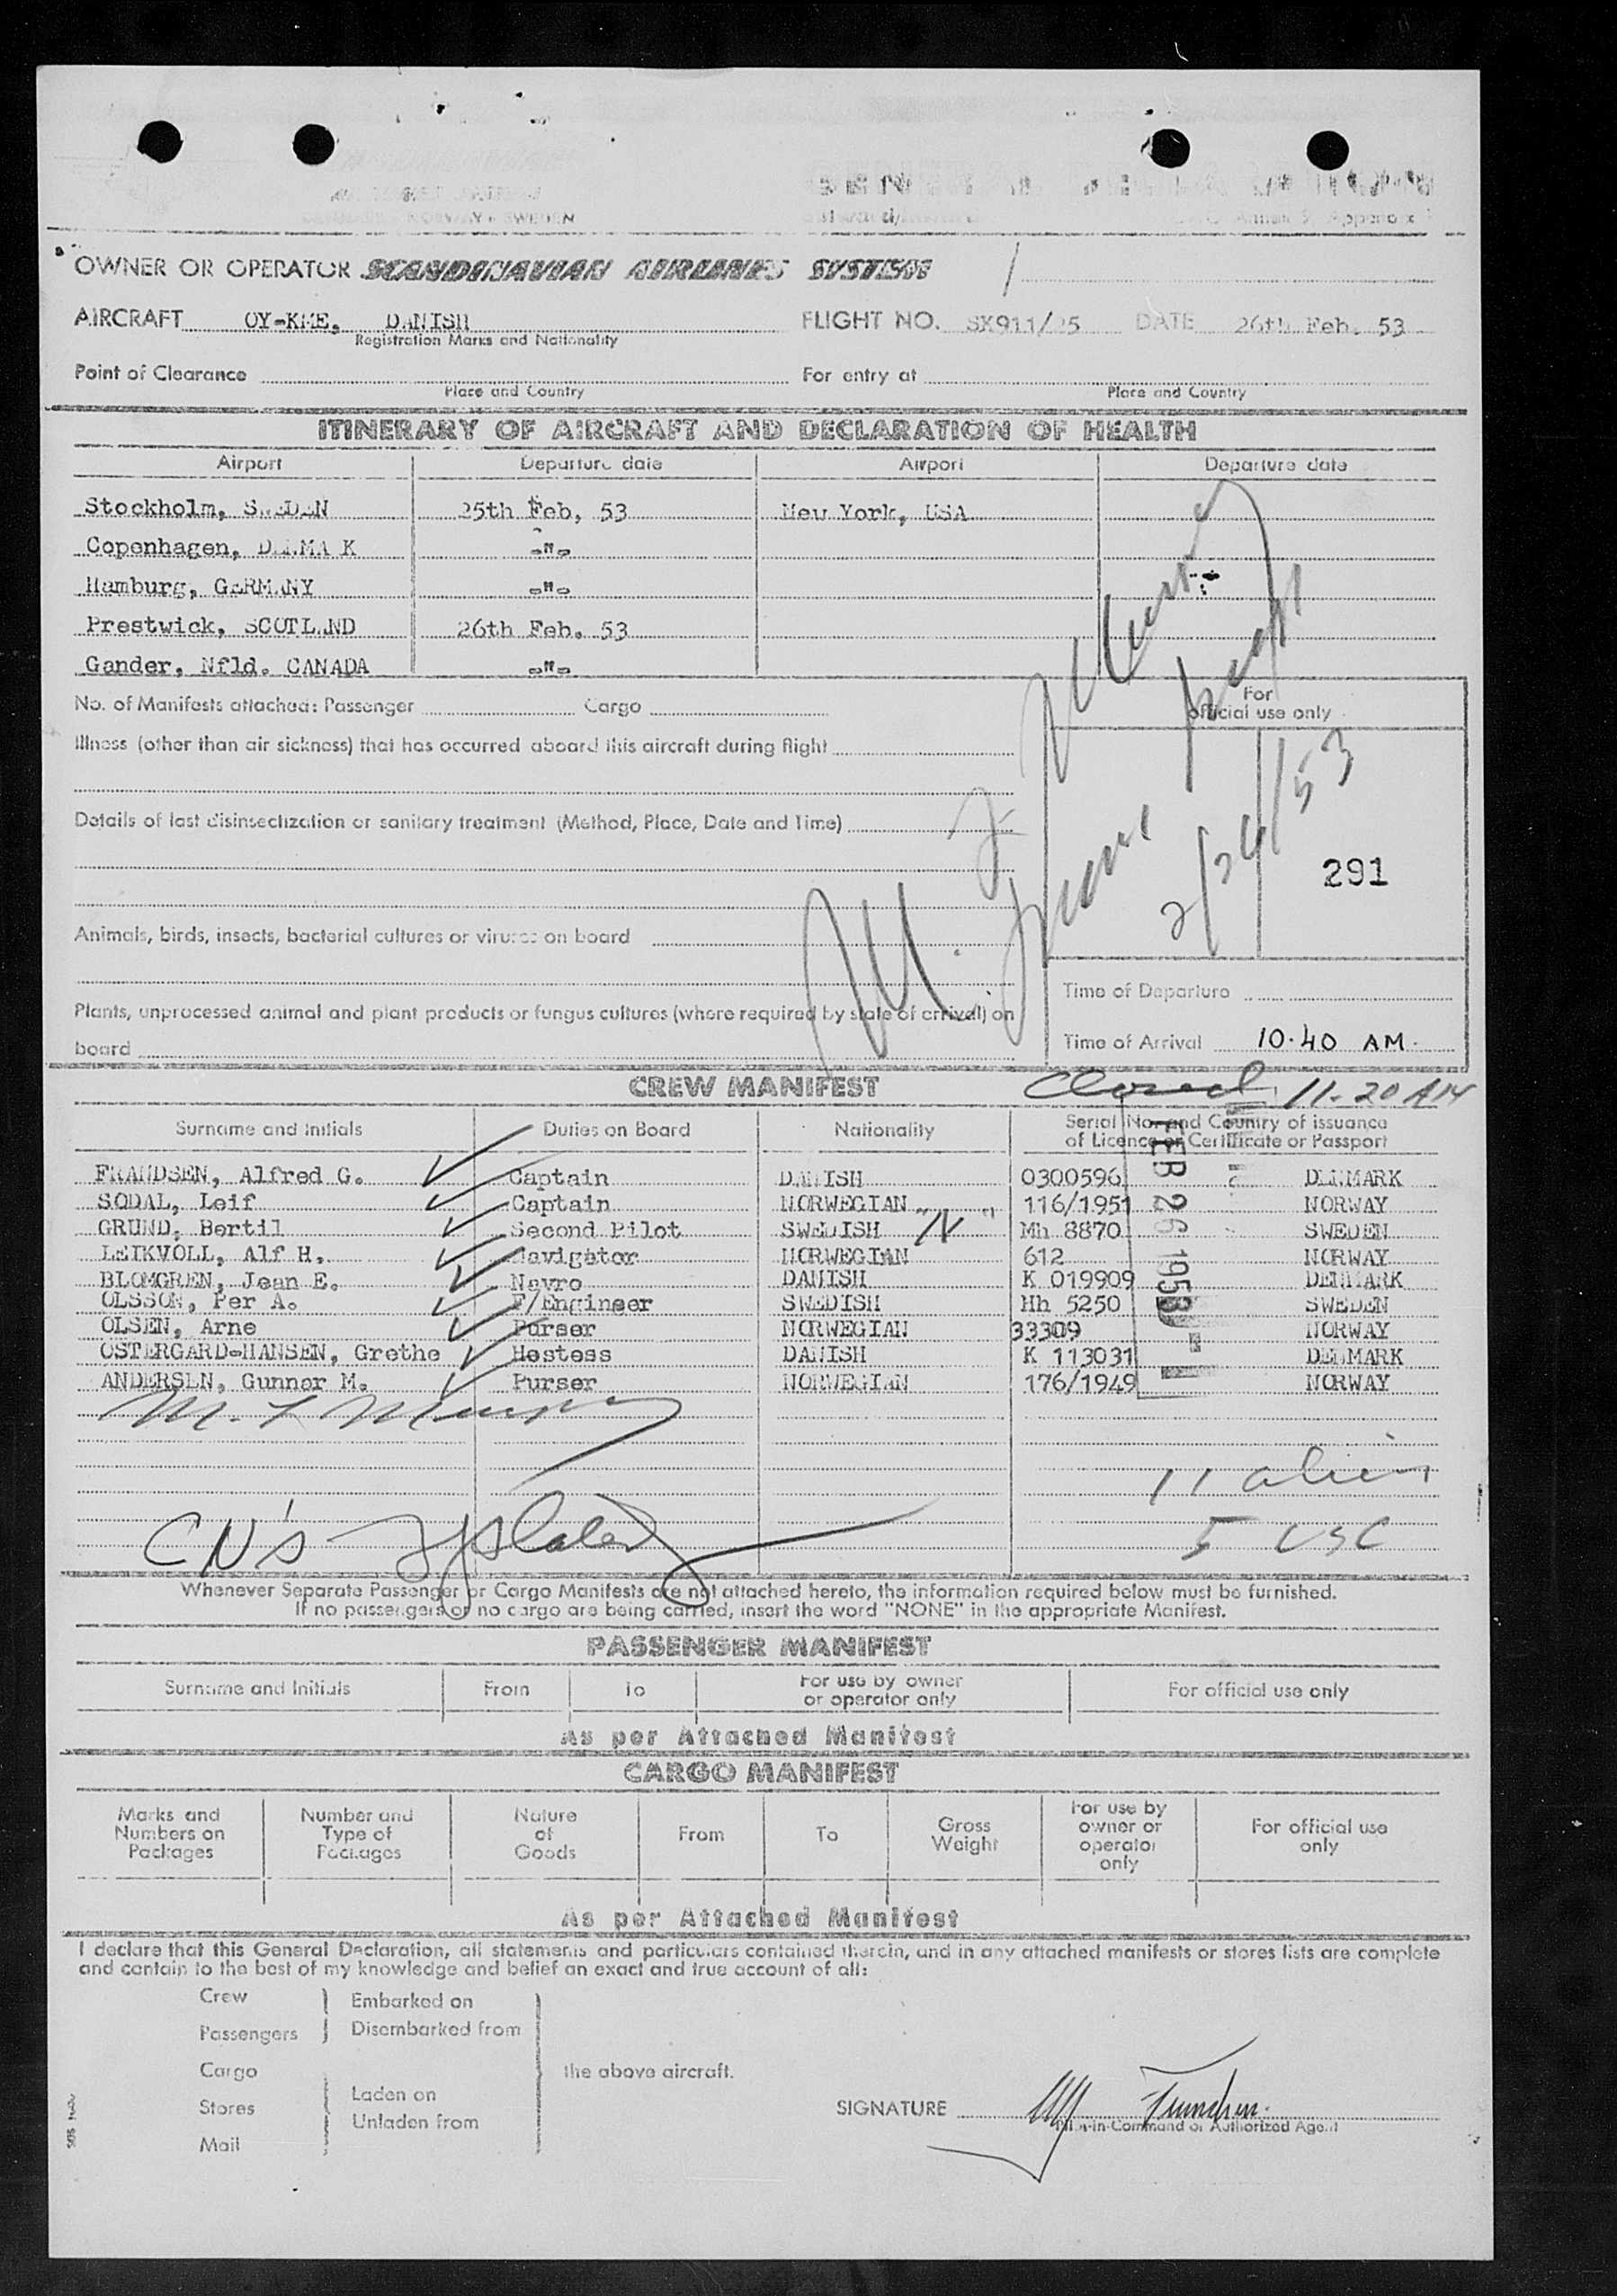 NORWAY • SWEDEN
OWNER OR OPERATOR SCANDINAVIAN AIRLINES SYSTEM
AIRCRAFT OY-KME, DANISH FLIGHT NO. SK911/25 DATE 26th Feb. 53
Registration Marks and Nationality
Point of Clearance For entry at
Place and Country Place and Country
ITINERARY OF AIRCRAFT AND DECLARATION OF HEALTH
Airport Departure date Airport Departure date
Stockholm, SWEDEN 25th Feb, 53 New York, USA
Copenhagen, DENMARK -"-
Hamburg, GERMANY -"-
Prestwick, SCOTLAND 26th Feb. 53
Gander, Nfld. CANADA -"-
No. of Manifests attached: Passenger Cargo
For
official use only
Illness (other than air sickness) that has occurred aboard this aircraft during flight
Details of last disinsectization or sanitary treatment (Method, Place, Date and Time)
2/26/53
291
Animals, birds, insects, bacterial cultures or viruses on board
Time of Departure
Plants, unprocessed animal and plant products or fungus cultures (where required by state of arrival) on
board
Time of Arrival 10.40 AM.
CREW MANIFEST Closed 11.20 AM
Surname and Initials Duties on Board Nationality Serial No. and Country of issuance
of Licence or Certificate or Passport
FRANDSEN, Alfred G. Captain DANISH 0300596 DENMARK
SODAL, Leif Captain NORWEGIAN 116/1951 NORWAY
GRUND, Bertil Second Pilot SWEDISH "N" Mh 8870 SWEDEN
LEIKVOLL, Alf H. Navigator NORWEGIAN 612 NORWAY
BLOMGREN, Jean E. Navro DANISH K 019909 DENMARK
OLSSON, Per A. F/Engineer SWEDISH Hh 5250 SWEDEN
OLSEN, Arne Purser NORWEGIAN 33309 NORWAY
OSTERGARD-HANSEN, Grethe Hostess DANISH K 113031 DENMARK
ANDERSEN, Gunnar M. Purser NORWEGIAN 176/1949 NORWAY
FEB 26 1953
11 alien
CN's
5 USC
Whenever Separate Passenger or Cargo Manifests are not attached hereto, the information required below must be furnished.
If no passengers or no cargo are being carried, insert the word "NONE" in the appropriate Manifest.
PASSENGER MANIFEST
Surname and Initials From To For use by owner
or operator only For official use only
As per Attached Manifest
CARGO MANIFEST
Marks and
Numbers on
Packages Number and
Type of
Packages Nature
of
Goods From To Gross
Weight For use by
owner or
operator
only For official use
only
As per Attached Manifest
I declare that this General Declaration, all statements and particulars contained therein, and in any attached manifests or stores lists are complete
and contain to the best of my knowledge and belief an exact and true account of all:
Crew Embarked on
Passengers Disembarked from
Cargo the above aircraft.
Stores Laden on
Unladen from
Mail
SIGNATURE
Pilot-in-Command or Authorized Agent